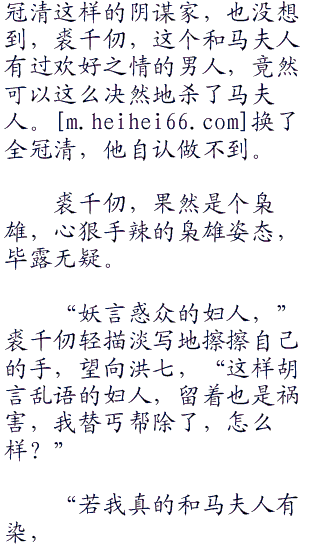 冠清这样的阴谋家，也没想
到，裘千仞，这个和马夫人
有过欢好之情的男人，竟然
可以这么决然地杀了马夫
人。[m.heihei66.com]换了
全冠清，他自认做不到。
裘千仞，果然是个枭
雄，心狠手辣的枭雄姿态，
毕露无疑。
“妖言惑众的妇人，”
裘千仞轻描淡写地擦擦自己
的手，望向洪七，“这样胡
言乱语的妇人，留着也是祸
害，我替丐帮除了，怎么
样？”
“若我真的和马夫人有
染，